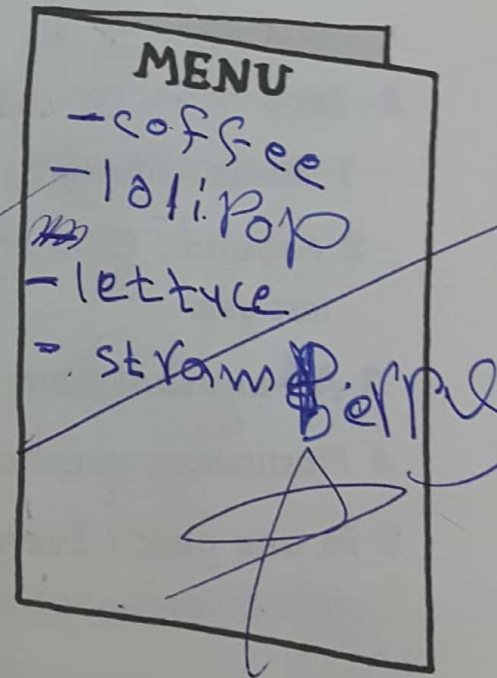 MENU
-coffee
-lolipop
-lettyce
- stramBerry